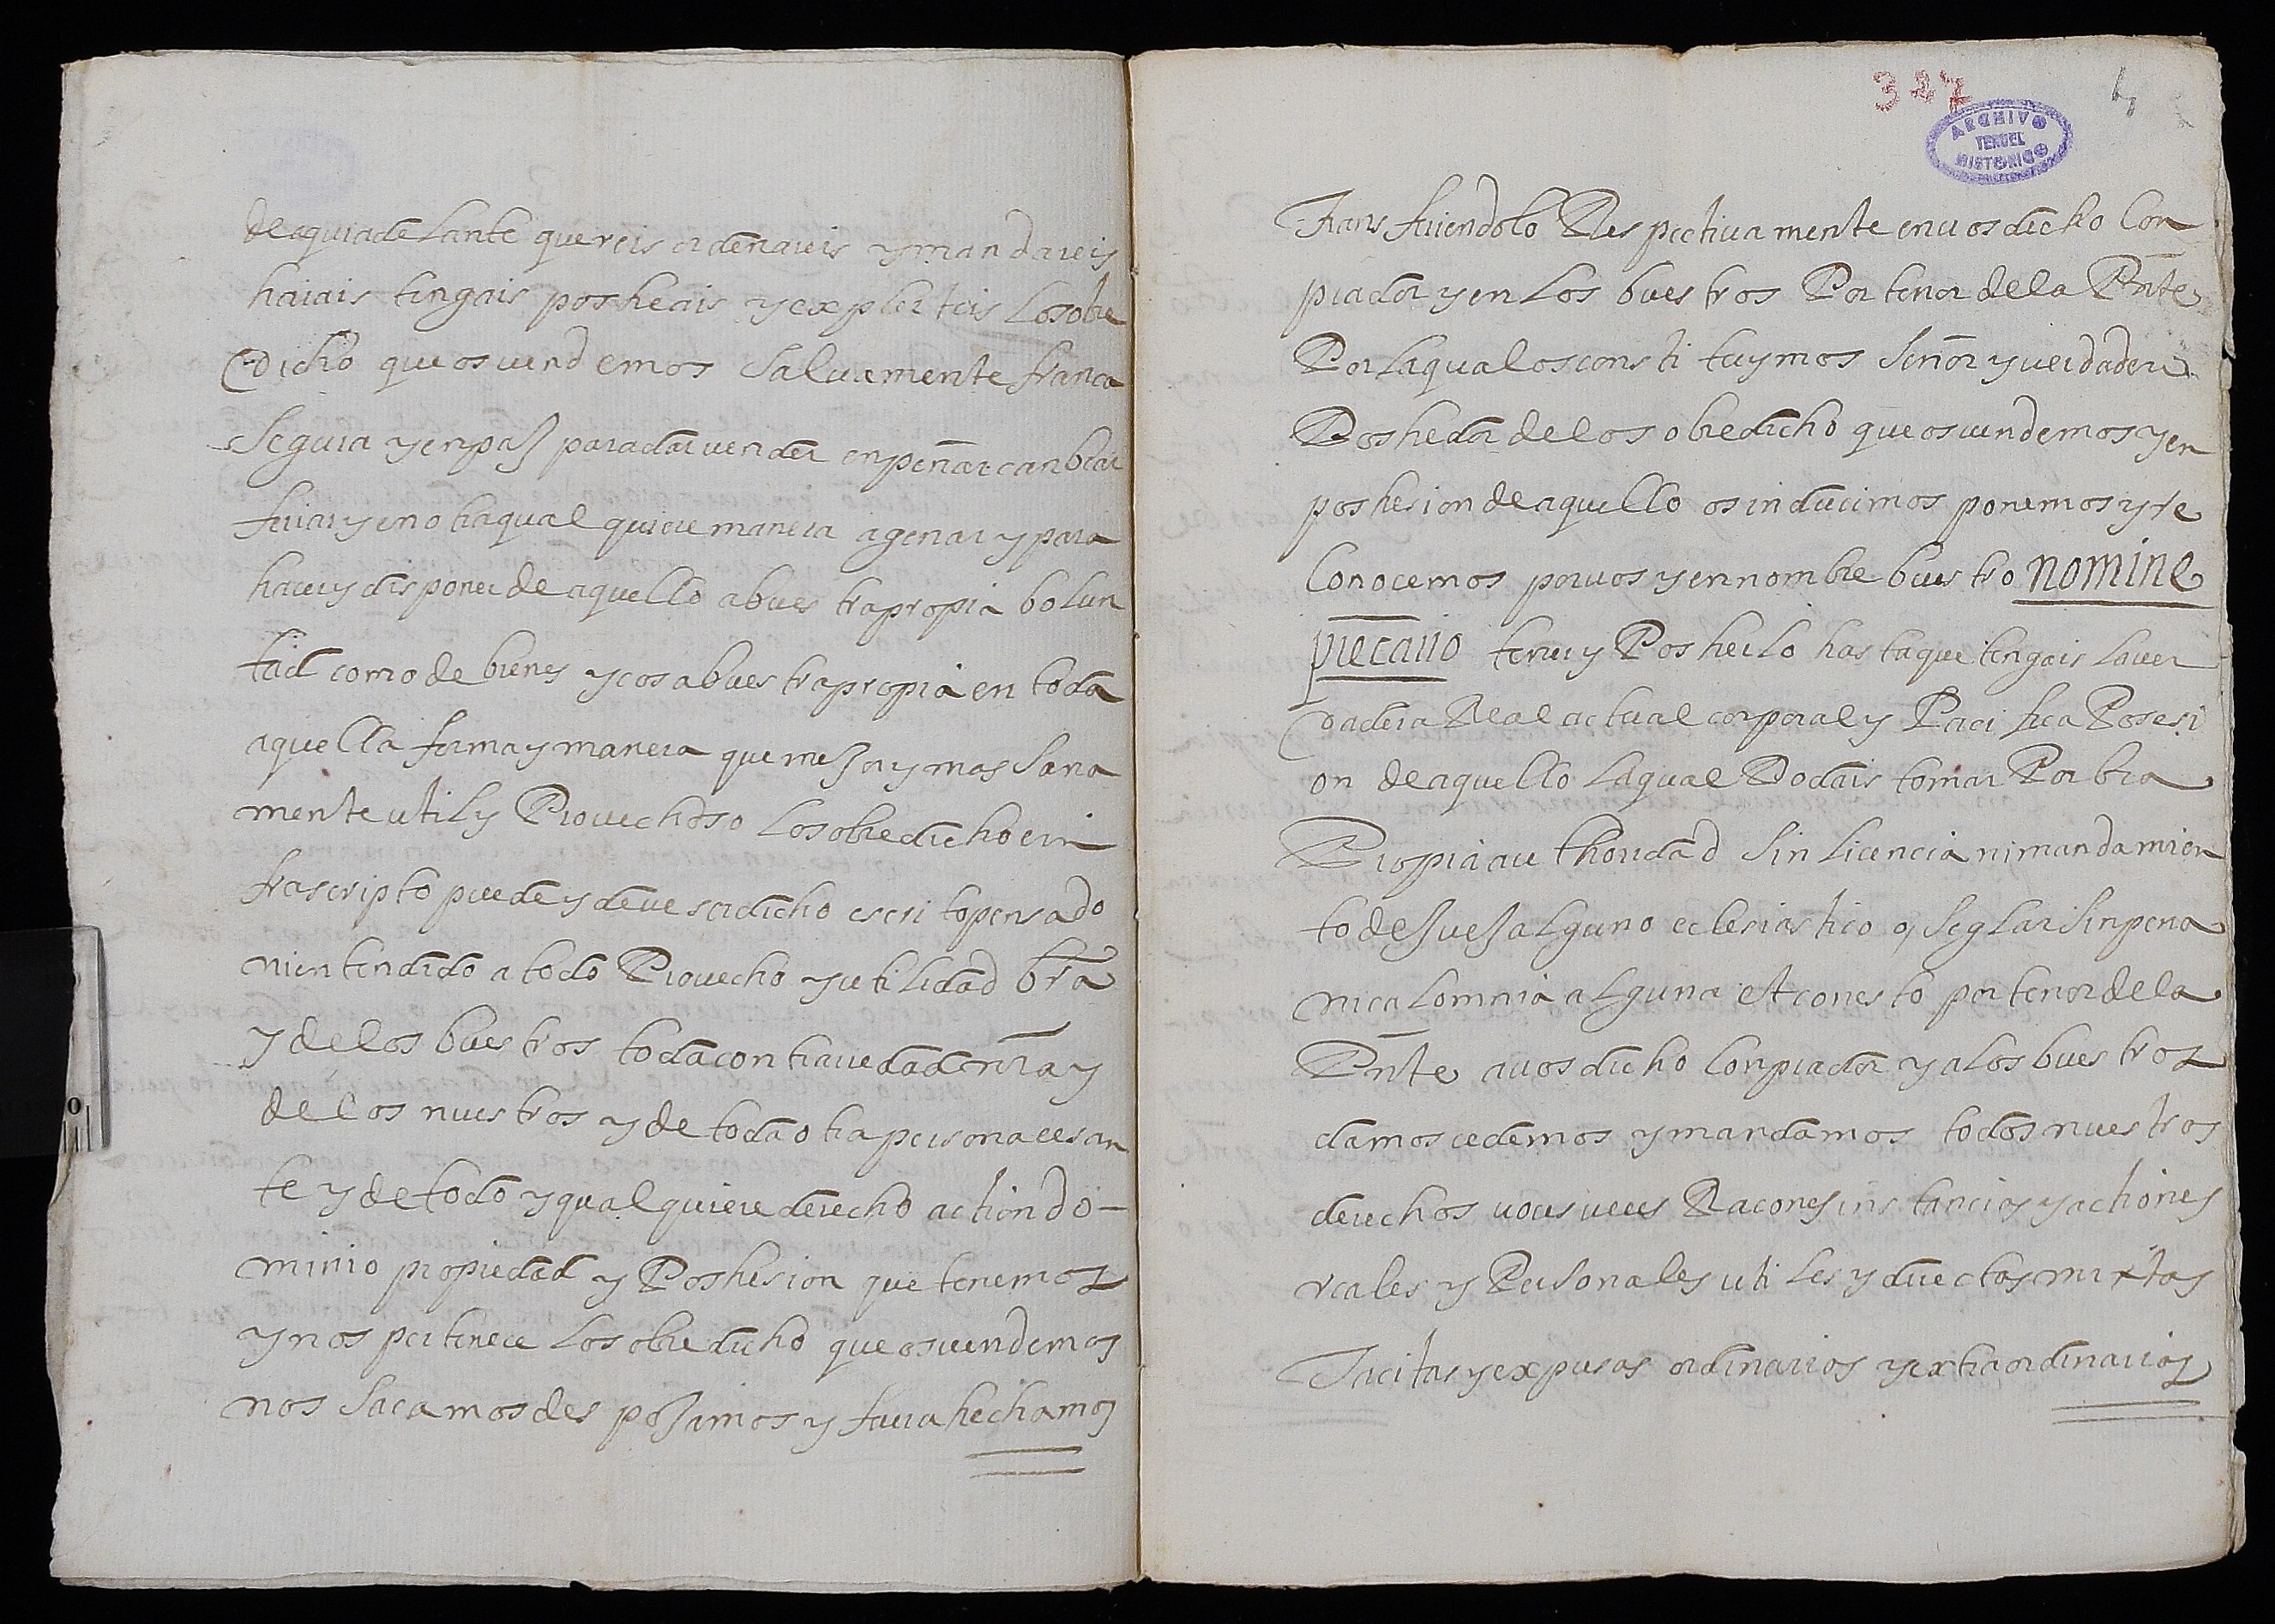 de aqui adelante quereis ordenareis y mandareis
haiais tengais posheais y explecteis lo sobre
Dicho que os vendemos salvamente franca
Segura y en paz para dar vender enpeñar canbiar
feriar y en otra qual quiere manera agenar y para
hacer y disponer de aquello a buestra propia bolun
tad como de bienes y cosa buestra propia en toda
aquella forma y manera que mejor y mas sana
mente util y Provechoso lo sobre dicho e in
frascripto puede y deve ser dicho escrito pensado
ni entendido a todo Provecho y utilidad bra
y de los buestros toda contrariedad nra y
de los nuestros y de toda otra persona cesan
te y de todo y qual quiere derecho action do-
minio propiedad y Poshesion que tenemos
y nos pertenece lo sobre dicho que os vendemos
nos sacamos desposamos y fuera hechamos
327 4
ARCHIVO
TERUEL
HISTORICO
Transfiriendolo Respectivamente en vos dicho Con
prador y en los buestros Por tenor de la Pnte
Por la qual os constituymos Señor y verdadero
Poshedor de lo sobre dicho que os vendemos y en
poshesion de aquello os inducimos ponemos y re
Conocemos por vos y en nombre buestro nomine
precario tener y Posherlo hasta que tengais la ver
Dadera Real actual corporal y Pacifica Posesi
on de aquello la qual Podais tomar Por bra
Propia authoridad sin licencia ni mandamien
to de Juez alguno eclesiastico o, seglar sin pena
ni calomnia alguna et con esto por tenor de la
Pnte a vos dicho Conprador y a los buestros
damos cedemos y mandamos todos nuestros
derechos voces veces Racones instancias y actiones
reales y Personales utiles y directas mixtas
Tacitas y expresas ordinarios y extraordinarios